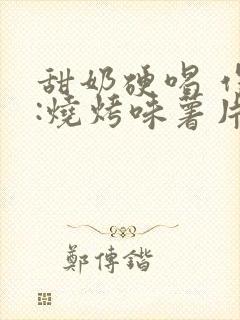 甜奶硬唱
:燒烤味薯片
鄭傳鍇